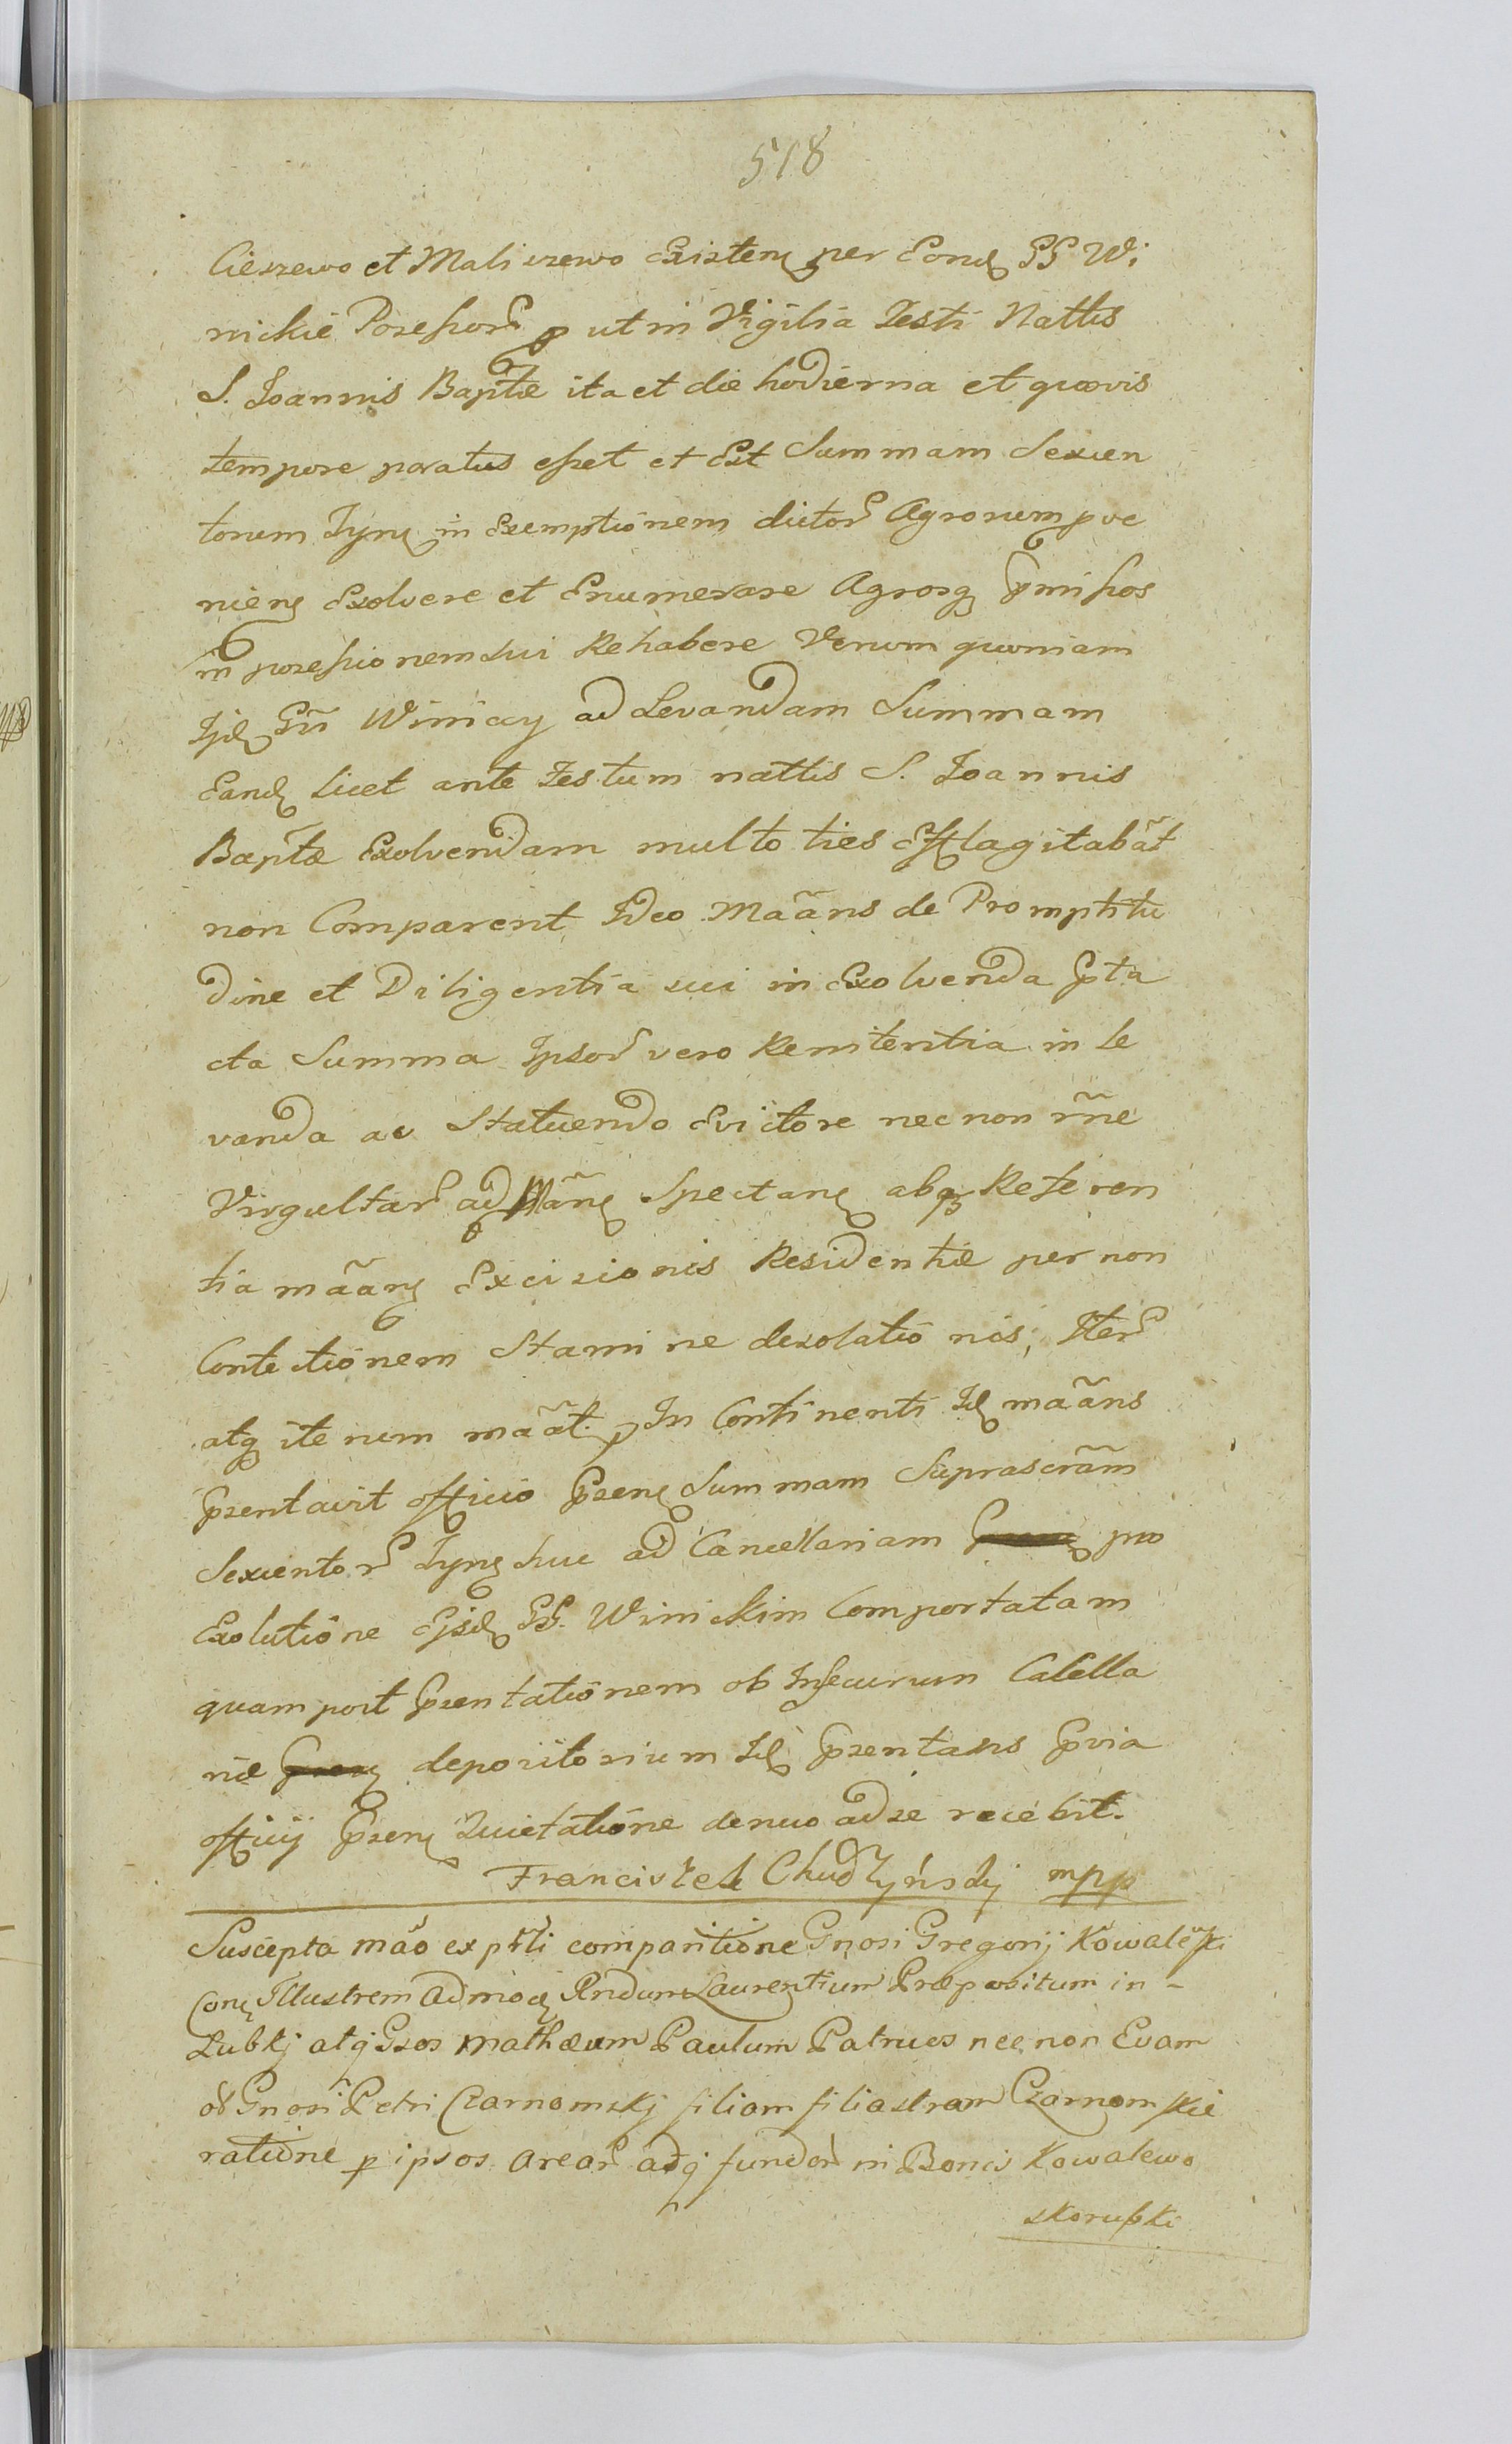 518
Cieszewo et Maliszewo Existen per Eond GG Wi
nickie Possessor p ut in Vigilia Festi Nattis
S. Joannis Baptæ ita et die hodierna et quovis
tempore paratus esset et Est Summam Sexcen
torum Tyn in Exemptionem dictor Agrorum pve
nien Exolvere et Enumerare Agrosq pmissos
in possessionem sui Rehabere Verum quoniam
Ijd Gn Winiccy ad Levandam Summam
Eand licet ante Festum nattis S. Joannis
Baptæ Exolvendam multoties Efflagitabat
non Comparent Ideo Maans de Promptitu
dine et Diligentia sui in Exolvenda pta
cta Summa Ipsor vero Renitentia in le
vanda ac Statuendo Evictore nec non rne
Virgultar ad Maan Spectan absq Referen
tia maan Excisionis Residentiæ per non
Contectionem Stamine desolationis, Iter
atq iterum maat. p In Continenti Id maans
Psentavit officio Psen Summam Suprascram
Sexcentor Tyn huc ad Cancellariam pro
Exolutione Ejsd GG. Winickim Comportatam
quam post Psentationem ob Insecurum Cacella
riæ depositorium Id Psentans Pvia
officij Psen Quietatione denuo ad se recebit.
Franciszek Chudzyńsky mpp
Suscepta mao ex prti comparitione Gnosi Gregorij Kowalewski
Con Illustrem Admod Rndum Laurentium Præpositum in -
Lubkj atq Gsos Mathæum Paulum Patrues nec non Evam
ol Gnosi Petri Czarnomskj filiam filiastram Czarnomskie
ratione p ipsos arear adq fundor in Bonis Kowalewo
skorupki